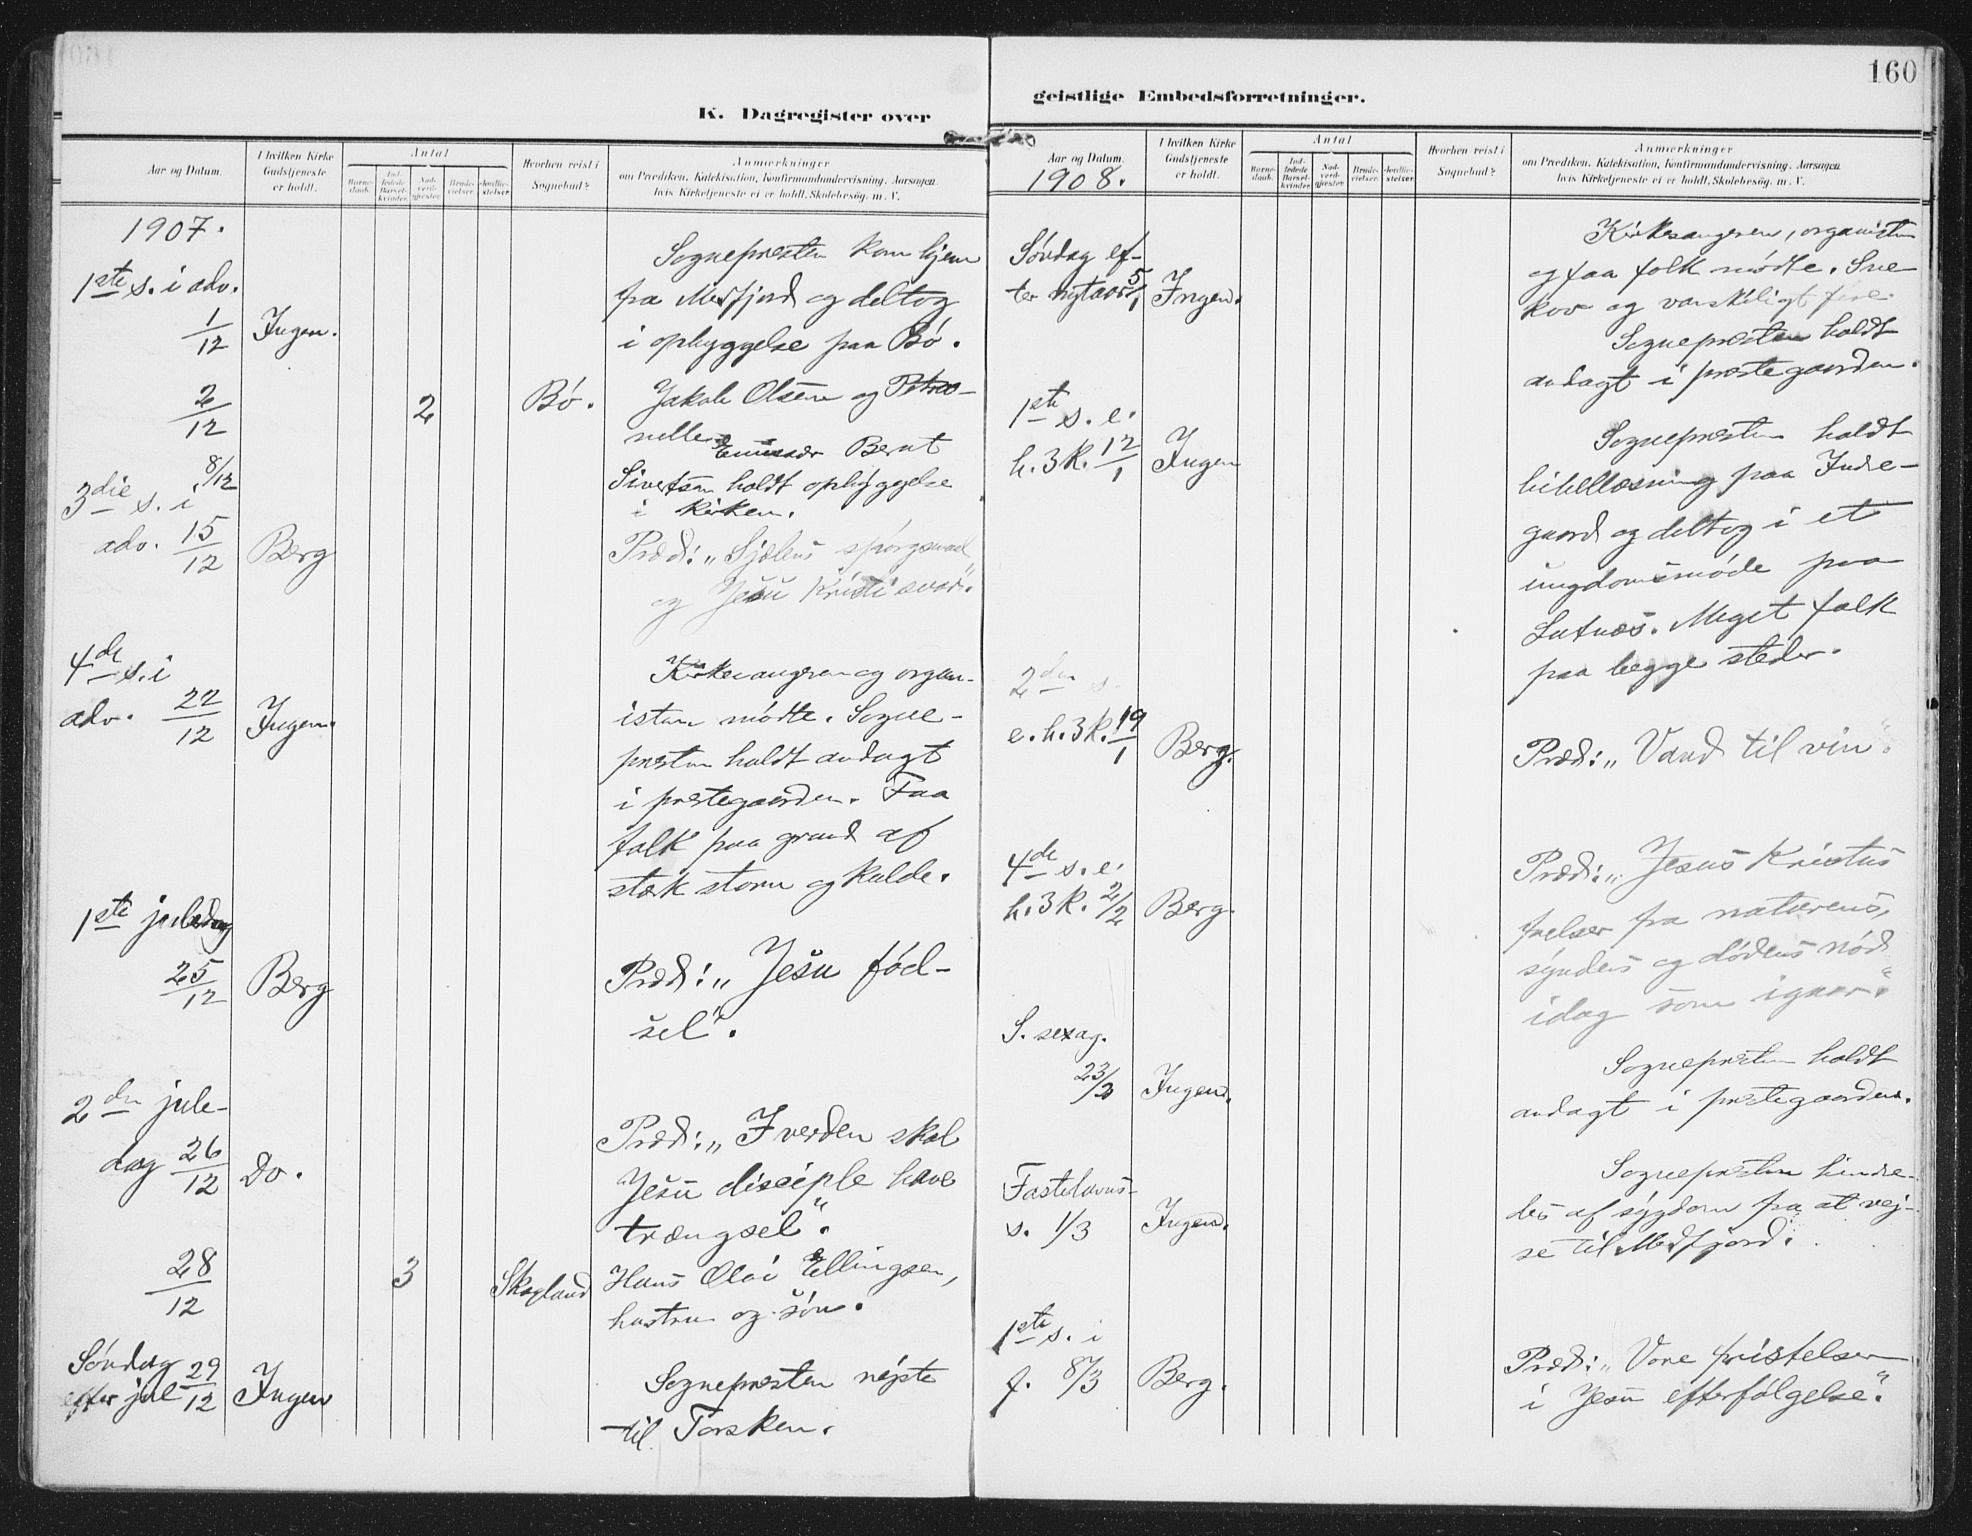 K. Dagregister over
Aar og Datum.
I hvilken Kirke
Gudstjeneste
er holdt.
Antal
Barne-
daab.
Ind-
ledede
Barsel-
kvinder.
Nad-
verd-
gjester.
Brude-
vielser.
Jordfæ-
stelser.
Hvorhen reist i
Sognebud?
Anmærkninger
om Prædiken, Katekisation, Konfirmandundervisning, Aarsagen,
hvis Kirketjeneste ei er holdt, Skolebesøg, m. V.
1907.
1ste s. i adv.
1/12 Ingen.
Sognepresten kom hjem
fra Mefjord og deltog
i opbyggelse paa Bö.
2/12 2 Bö.
Jakob Olsen og Petro-
nelle
8/12 Emissær Bernt
Sivertsen holdt opbyggelse
i kirken.
3die s. i
adv. 15/12 Berg
Præd: „Sjælens spörgsmaal
og Jesu Kristi svar".
4de s. i
adv. 22/12 Ingen.
Kirkesangeren og organ-
isten mödte. Sogne-
presten holdt andagt
i prestegaarden. Faa
folk paa grund af
stærk storm og kulde.
1ste juledag
25/12 Berg
Præd: „Jesu föd-
sel".
2den jule-
dag 26/12 Do.
Præd: „I verden skal
Jesu disciple have
trængsel".
28/12 3 Skogland
Hans Olai Ellingsen,
hustru og sön.
Söndag
efter jul 29/12 Ingen
Sognepresten rejste
til Torsken.
160
geistlige Embedsforretninger.
Aar og Datum.
I hvilken Kirke
Gudstjeneste
er holdt.
Antal
Barne-
daab.
Ind-
ledede
Barsel-
kvinder.
Nad-
verd-
gjester.
Brude-
vielser.
Jordfæ-
stelser.
Hvorhen reist i
Sognebud?
Anmærkninger
om Prædiken, Katekisation, Konfirmandundervisning, Aarsagen,
hvis Kirketjeneste ei er holdt, Skolebesøg, m. V.
1908.
Söndag ef-
ter nytaar 5/1 Ingen.
Kirkesangeren, organisten
og faa folk mödte. Sne-
kov og vanskeligt före.
Sognepresten holdt
andagt i prestegaarden.
1ste s. e.
h. 3 k. 12/1 Ingen
Sognepresten holdt
bibellæsning paa Indre-
gaard og deltog i et
ungdomsmöde paa
Lutnæs. Meget folk
paa begge steder.
2den s.
e. h. 3 k. 19/1 Berg.
Præd: „Vand til vin".
4de s. e.
h. 3 k. 2/2 Berg.
Præd: „Jesus Kristus
frelser fra naturens,
syndens og dödens nöd
idag som igaar."
S. sexag.
23/2 Ingen.
Sognepresten holdt
andagt i prestegaarden.
Fastelavns-
s. 1/3 Ingen.
Sognepresten hindre-
des af sygdom fra at rej-
se til Medfjord.
1ste s. i
f. 8/3 Berg.
Præd: „Vore fristelser
i Jesu efterfölgelse".